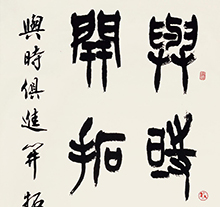 與時
開拓
與時俱進開拓